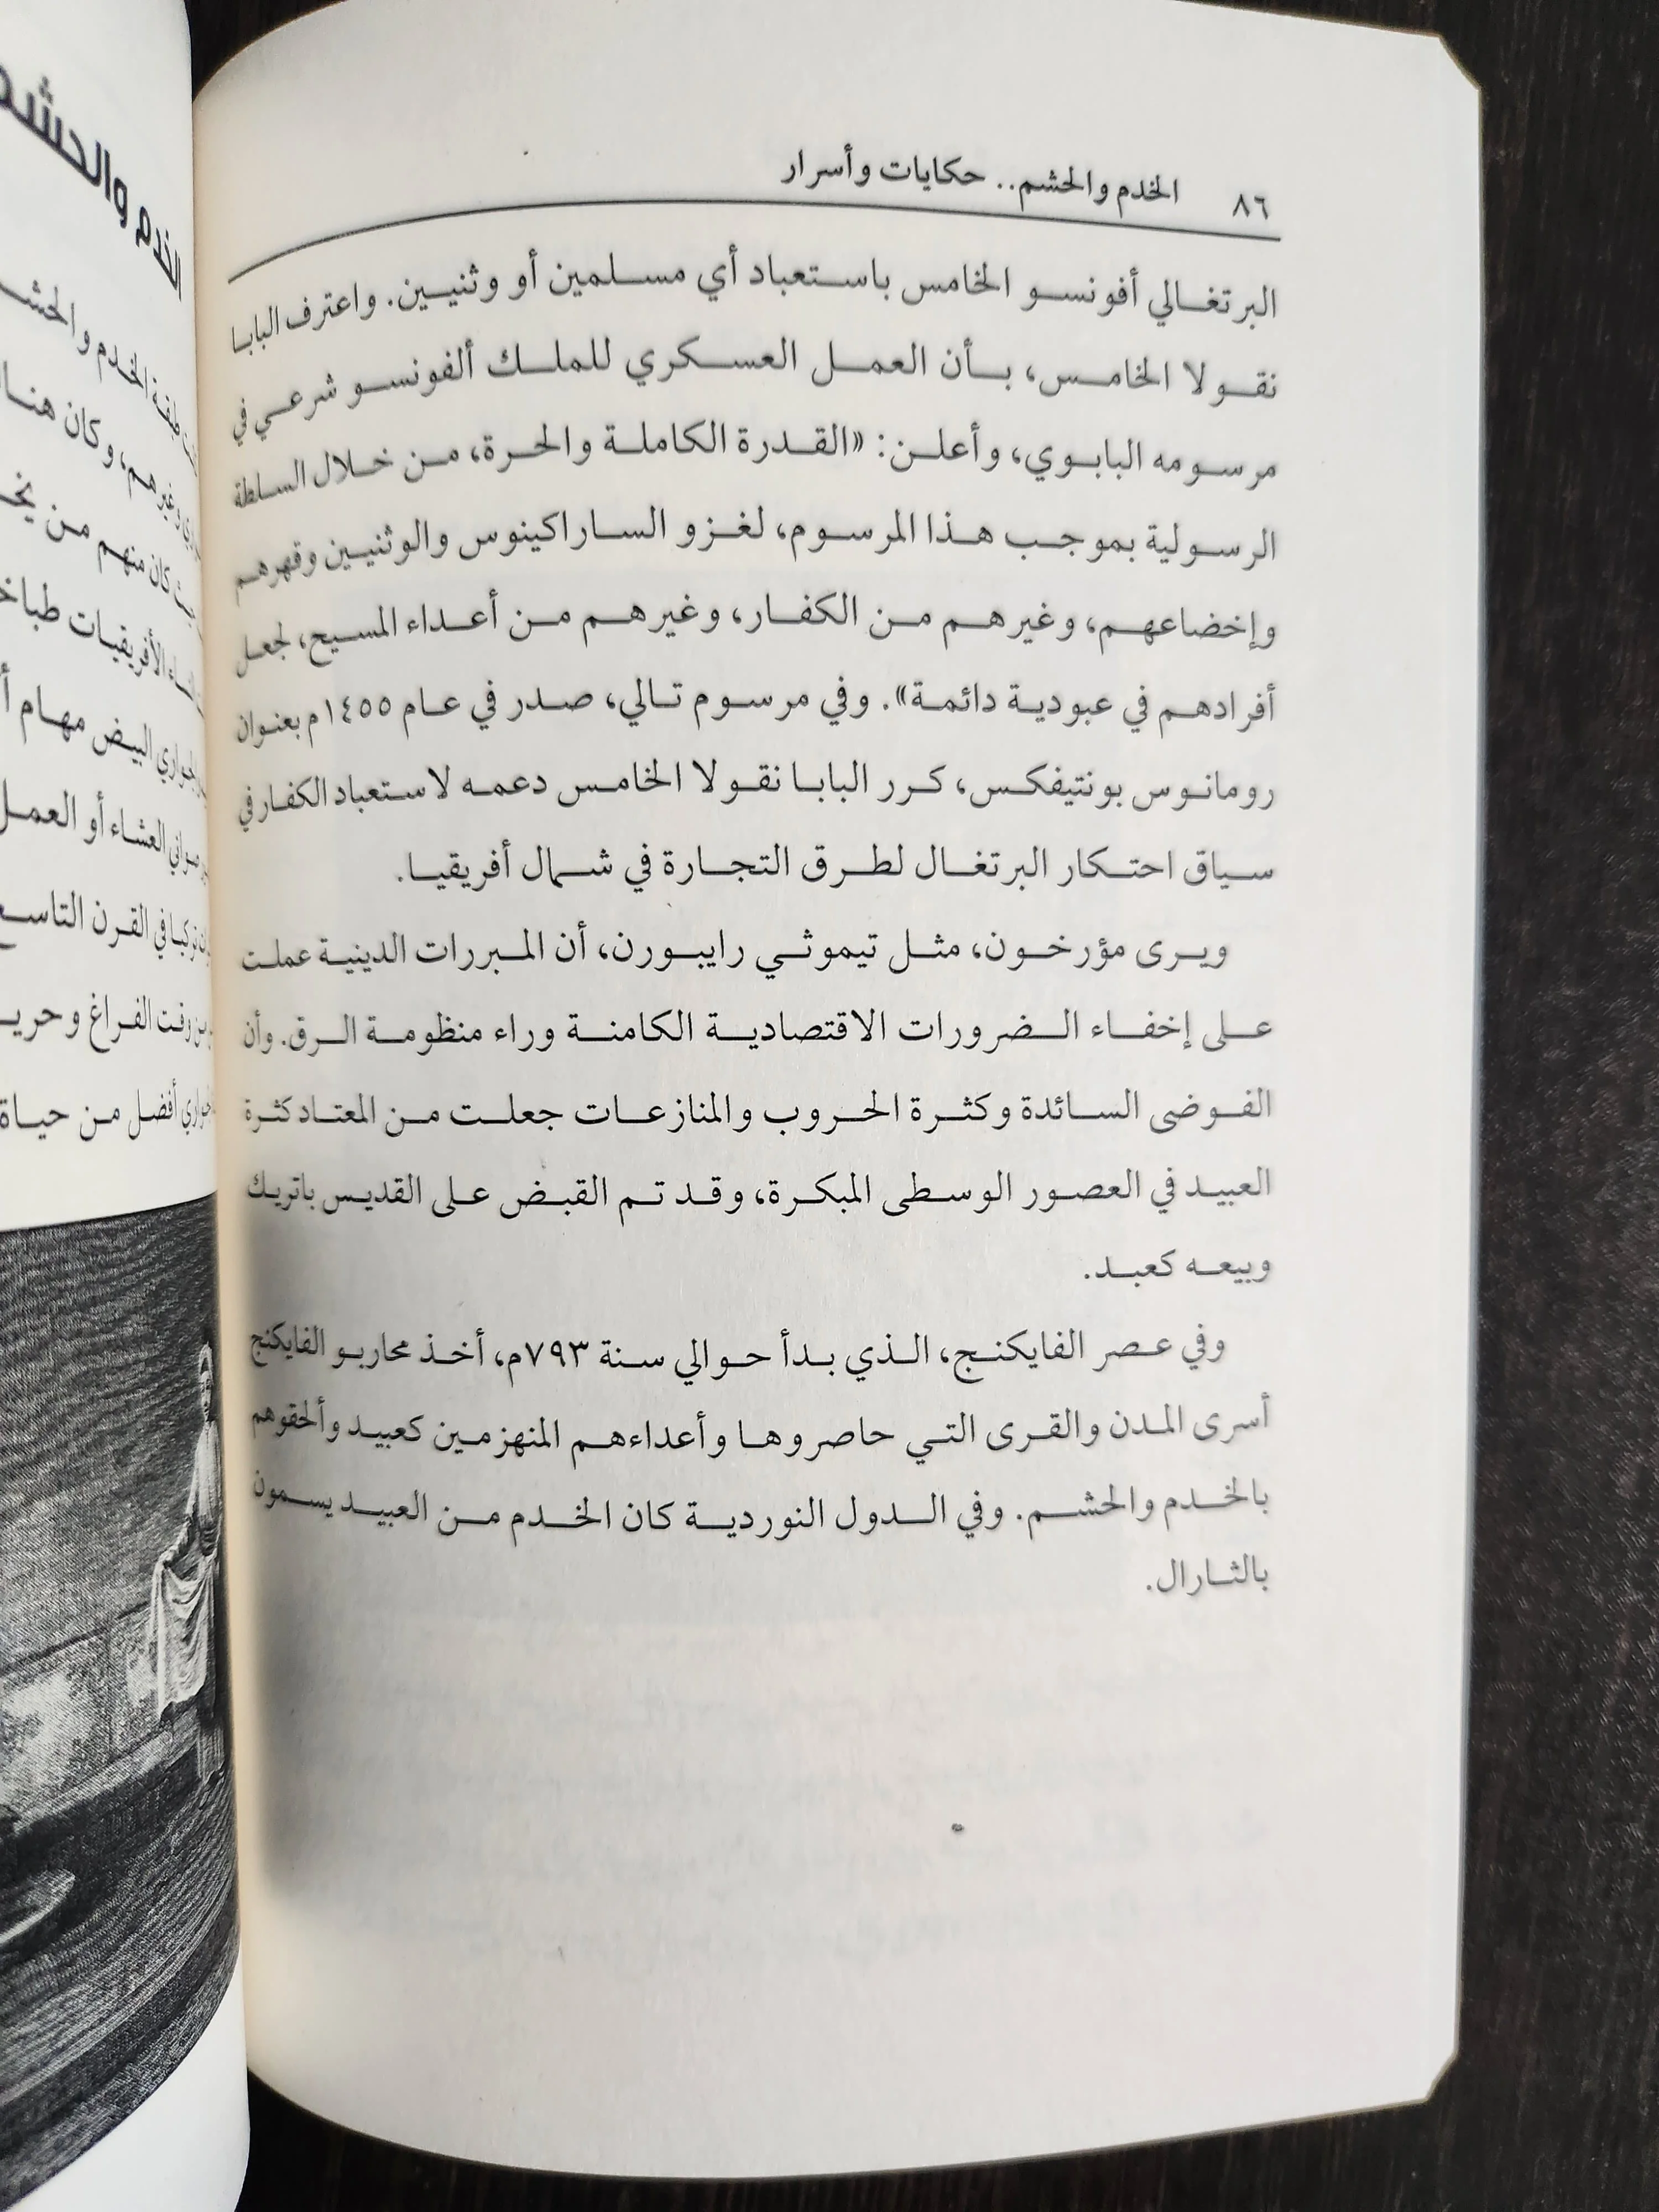 ٨٦ الخدم والحشم.. حكايات وأسرار
البرتغالي أفونسو الخامس باستعباد أي مسلمين أو وثنيين. واعترف البابا
نقولا الخامس، بأن العمل العسكري للملك ألفونسو شرعي في
مرسومه البابوي، وأعلن: «القدرة الكاملة والحرة، من خلال السلطة
الرسولية بموجب هذا المرسوم، لغزو الساراكينوس والوثنيين وقهرهم
وإخضاعهم، وغيرهم من الكفار، وغيرهم من أعداء المسيح، لجعل
أفرادهم في عبودية دائمة». وفي مرسوم تالي، صدر في عام ١٤٥٥م بعنوان
رومانوس بونتيفكس، كرر البابا نقولا الخامس دعمه لاستعباد الكفار في
سياق احتكار البرتغال لطرق التجارة في شمال أفريقيا.
ويرى مؤرخون، مثل تيموثي رايبورن، أن المبررات الدينية عملت
على إخفاء الضرورات الاقتصادية الكامنة وراء منظومة الرق. وأن
الفوضى السائدة وكثرة الحروب والمنازعات جعلت من المعتاد كثرة
العبيد في العصور الوسطى المبكرة، وقد تم القبض على القديس باتريك
وبيعه كعبد.
وفي عصر الفايكنج، الذي بدأ حوالي سنة ٧٩٣م، أخذ محاربو الفايكنج
أسرى المدن والقرى التي حاصروها وأعداءهم المنهزمين كعبيد وألحقوهم
بالخدم والحشم. وفي الدول النوردية كان الخدم من العبيد يسمون
بالثارال.
الخدم والحشم
طبقة الخدم والحشم
وغيرهم، وكان هنا
كان منهم من
الأفريقيات
الجواري البيض مهام
صواني العشاء أو العمل
تركيا في القرن
من وقت الفراغ
أفضل من حياة